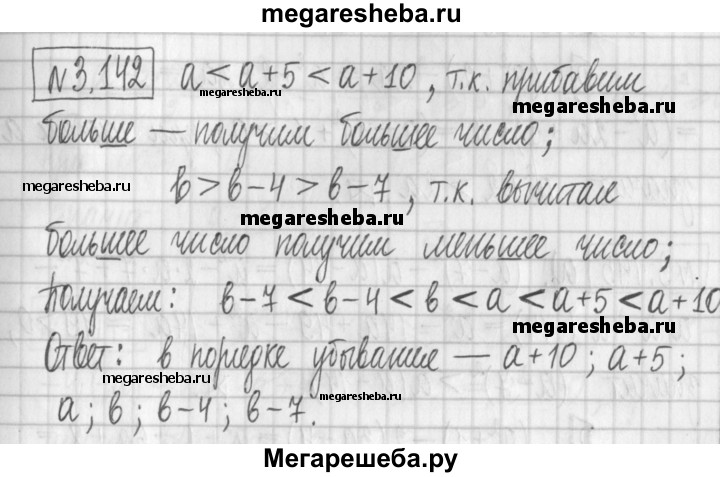 megaresheba.ru
№3.142 a < a+5 < a+10, т.к. прибавим
megaresheba.ru megaresheba.ru
больше — получим большее число;
megaresheba.ru в > в-4 > в-7, т.к. вычитая
megaresheba.ru
большее число получим меньшее число;
Получаем: в-7 < в-4 < в < a < a+5 < a+10
megaresheba.ru
Ответ: в порядке убывание — a+10; a+5;
megaresheba.ru megaresheba.ru
a; в; в-4; в-7.
Мегарешеба.ру